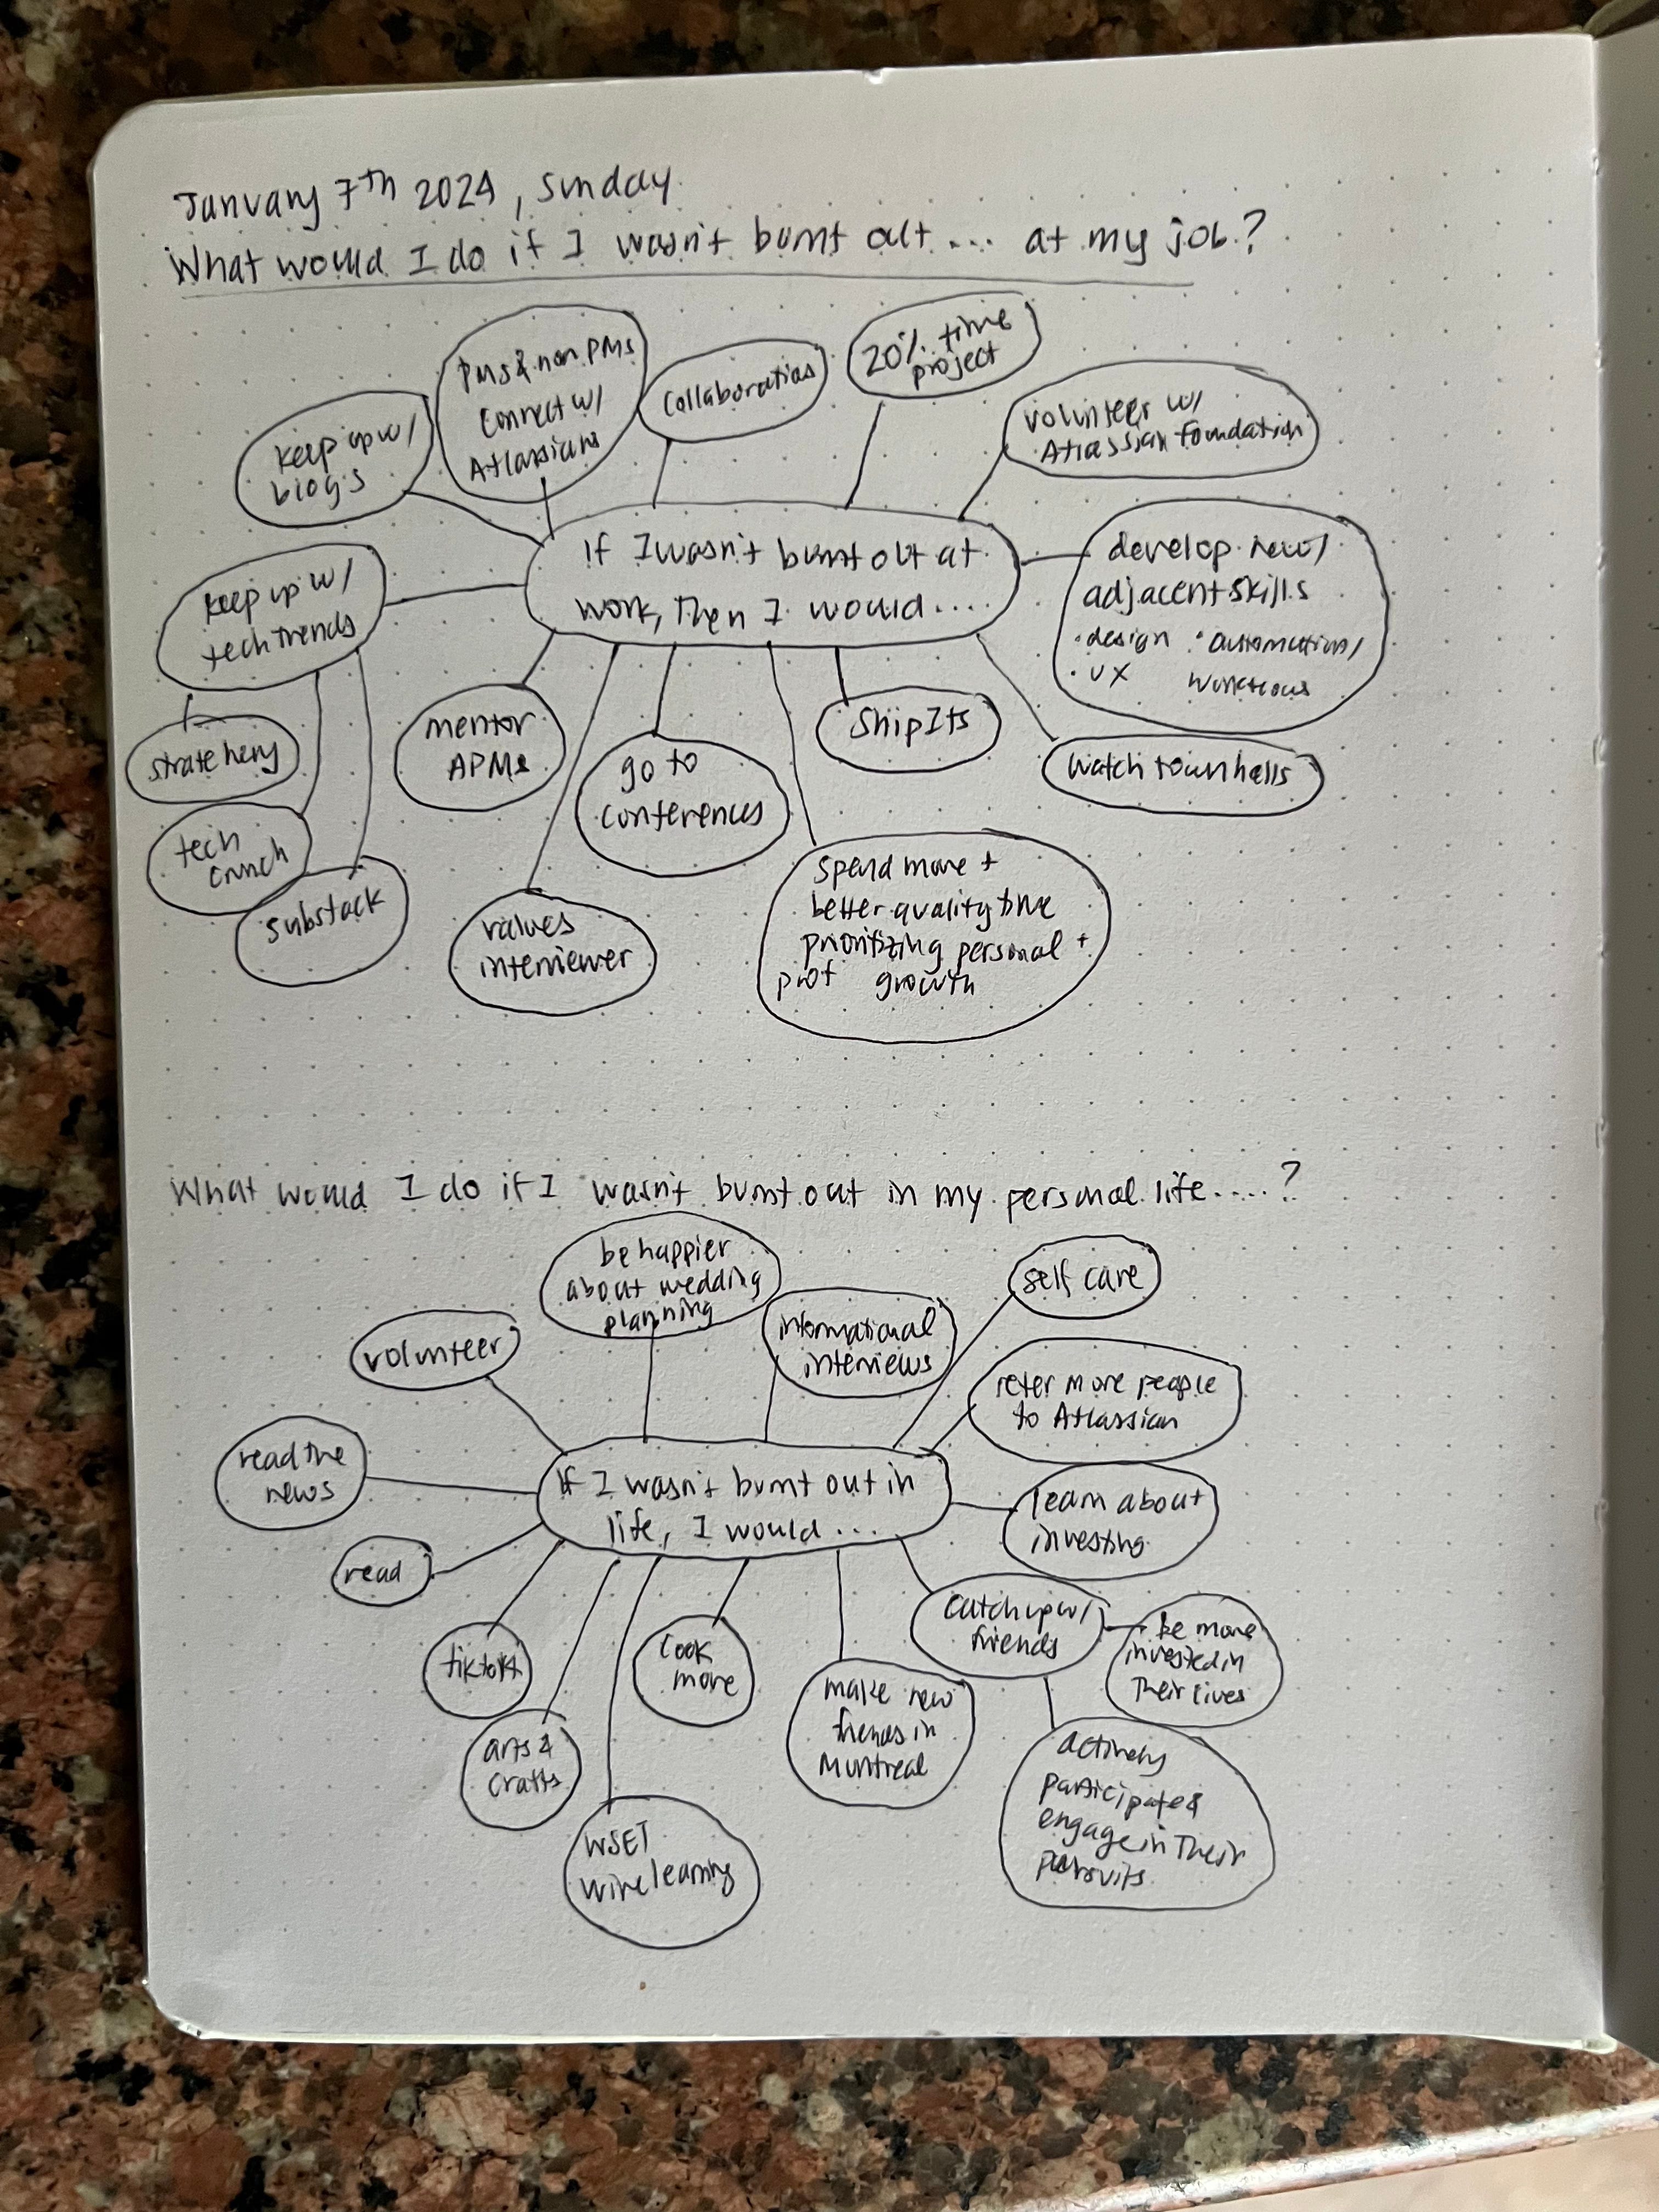 January 7th 2024, Sunday
What would I do if I wasn't burnt out... at my job?
PMs & non PMs
connect w/
Atlassians
Collaboration
20% time
project
volunteer w/
Atlassian Foundation
keep up w/
blogs
If I wasn't burnt out at
work, then I would....
develop new/
adjacent skills
• design • automation/
• UX workflows
keep up w/
tech trends
stratechery
tech
crunch
substack
mentor
APMs
values
interviewer
go to
conferences
ShipIts
spend more +
better quality time
prioritizing personal +
prof growth
watch townhalls
What would I do if I wasn't burnt out in my personal life.....?
be happier
about wedding
planning
self care
volunteer
informational
interviews
refer more people
to Atlassian
read the
news
If I wasn't burnt out in
life, I would...
learn about
investing
read
tiktok
arts &
crafts
WSET
wine learning
cook
more
make new
friends in
Montreal
catch up w/
friends
be more
invested in
their lives
actively
participate &
engage in their
pursuits